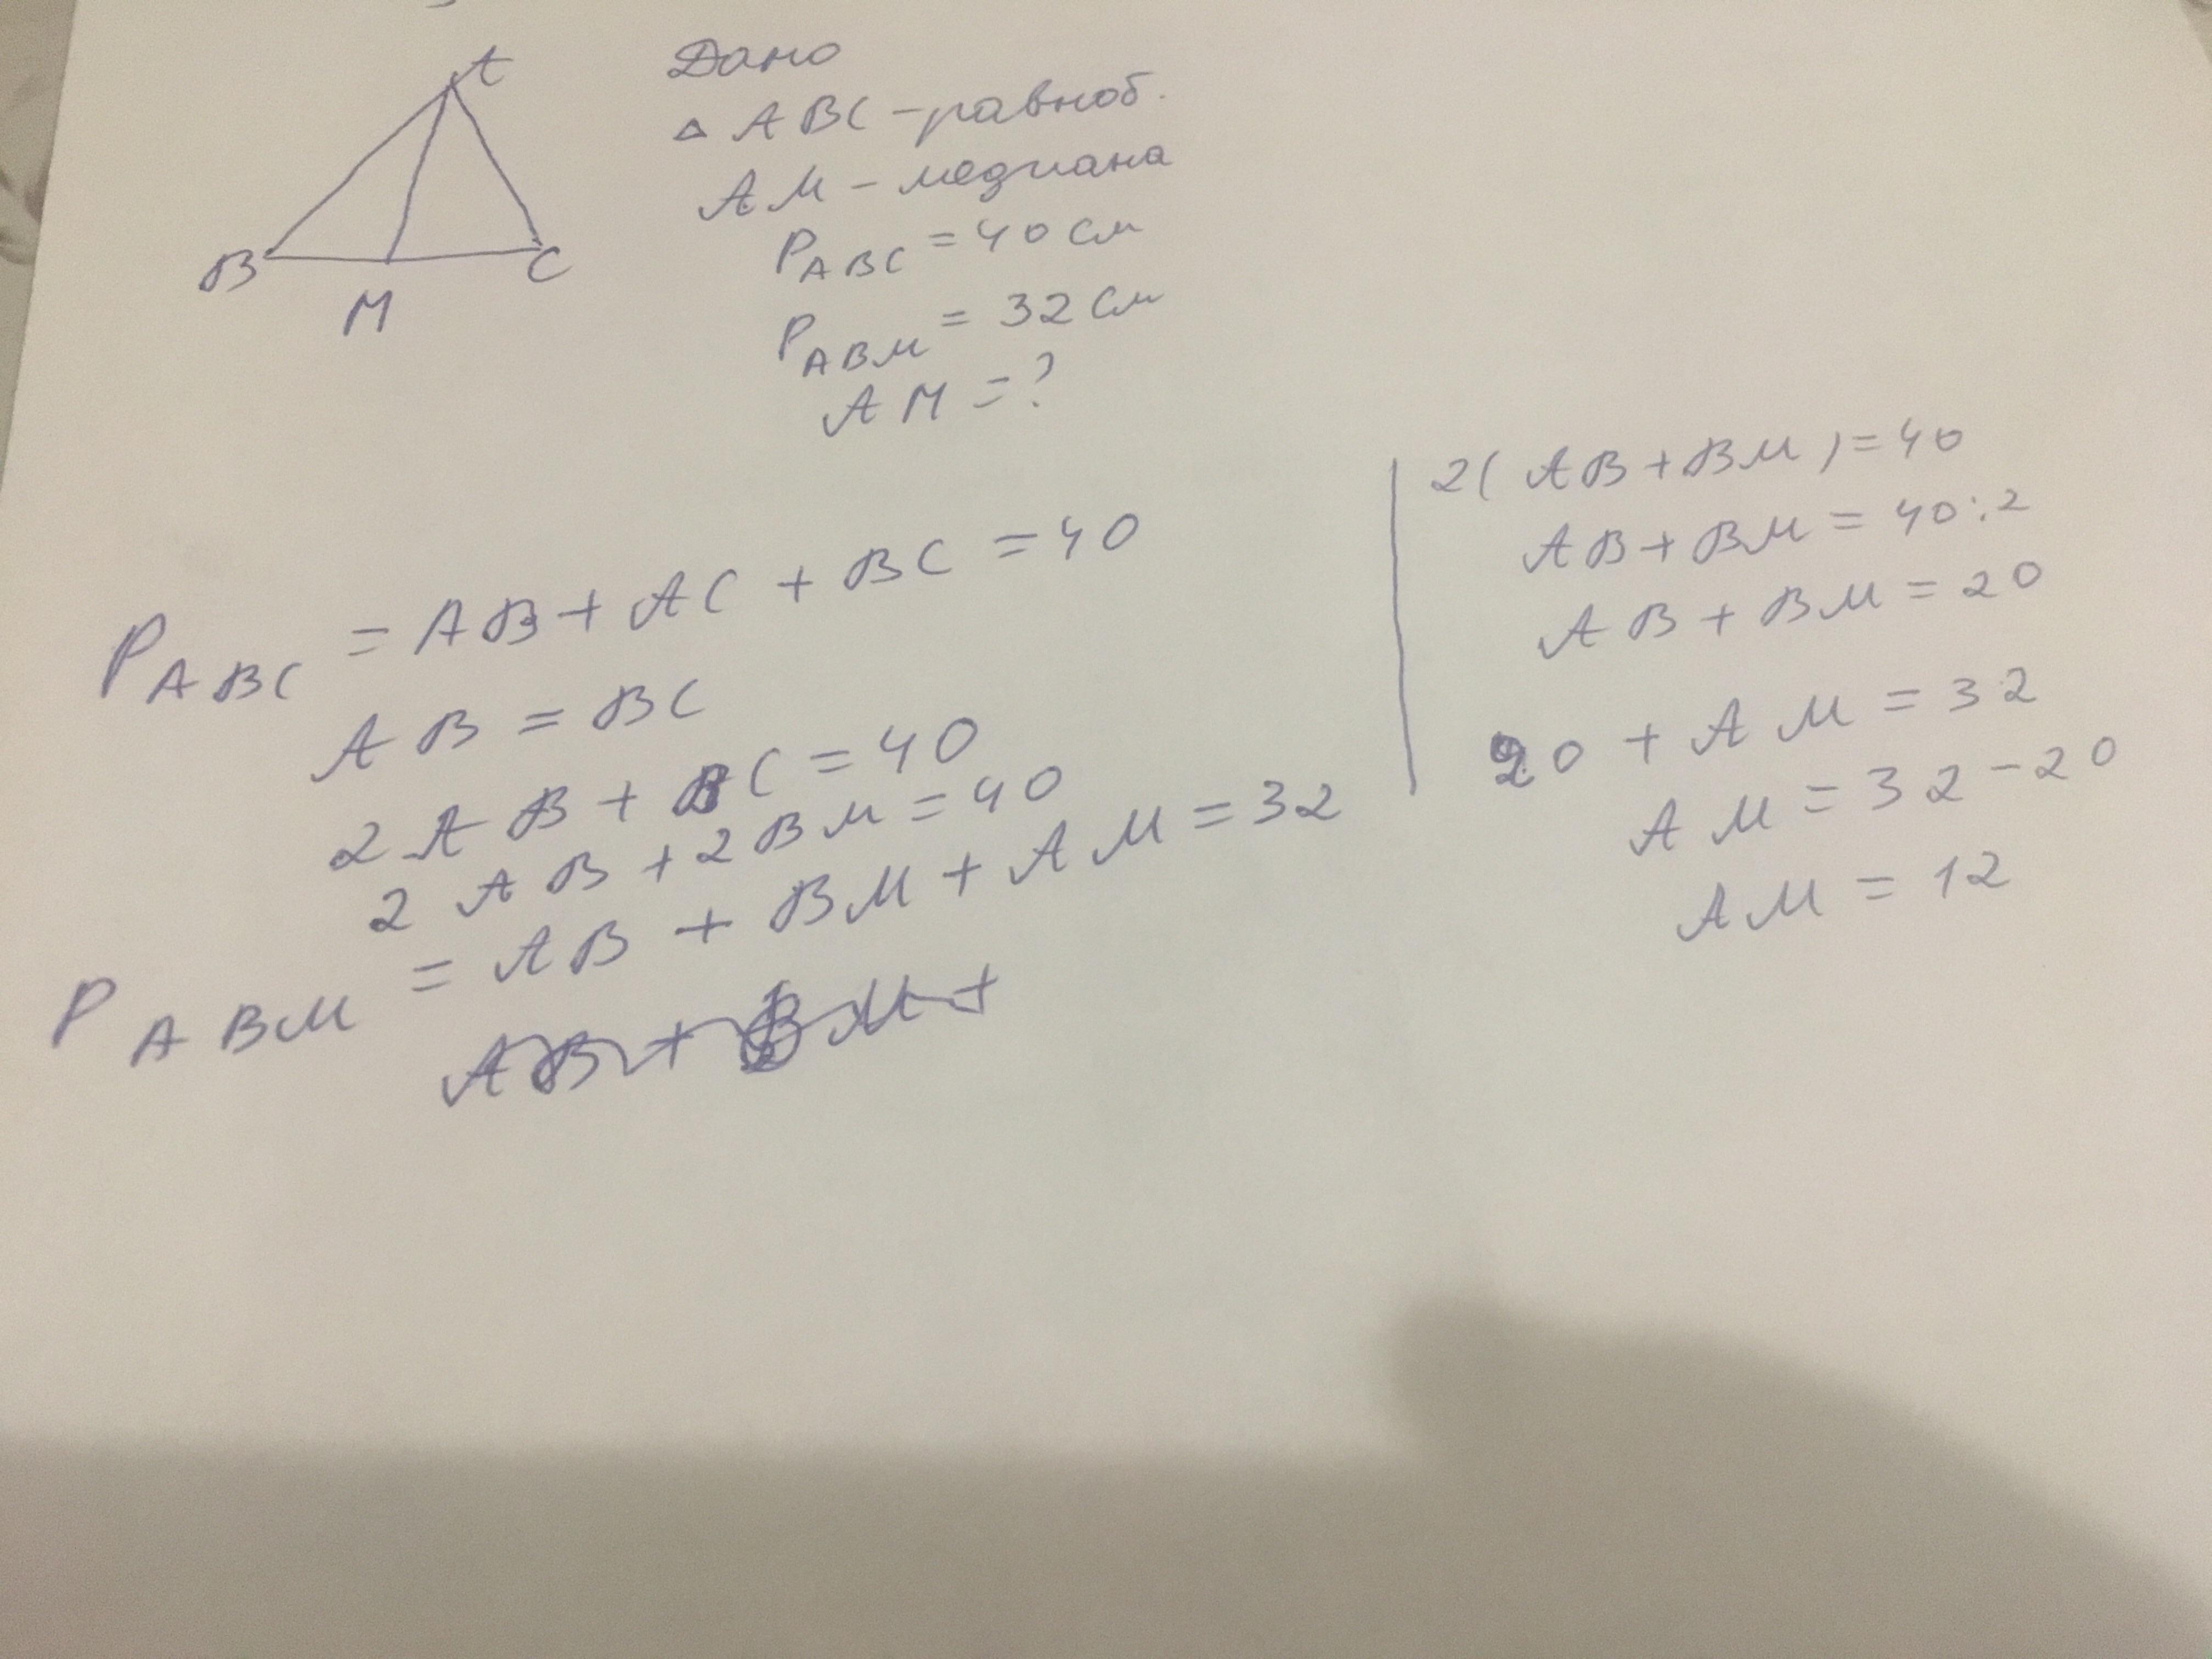 A
B
M
C
Дано
△ ABC – равноб.
AM – медиана
P ABC = 40 см
P ABM = 32 см
AM = ?
P ABC = AB + AC + BC = 40
AB = BC
2 AB + BC = 40
2 AB + 2BM = 40
P ABM = AB + BM + AM = 32
2(AB + BM) = 40
AB + BM = 40:2
AB + BM = 20
20 + AM = 32
AM = 32 – 20
AM = 12